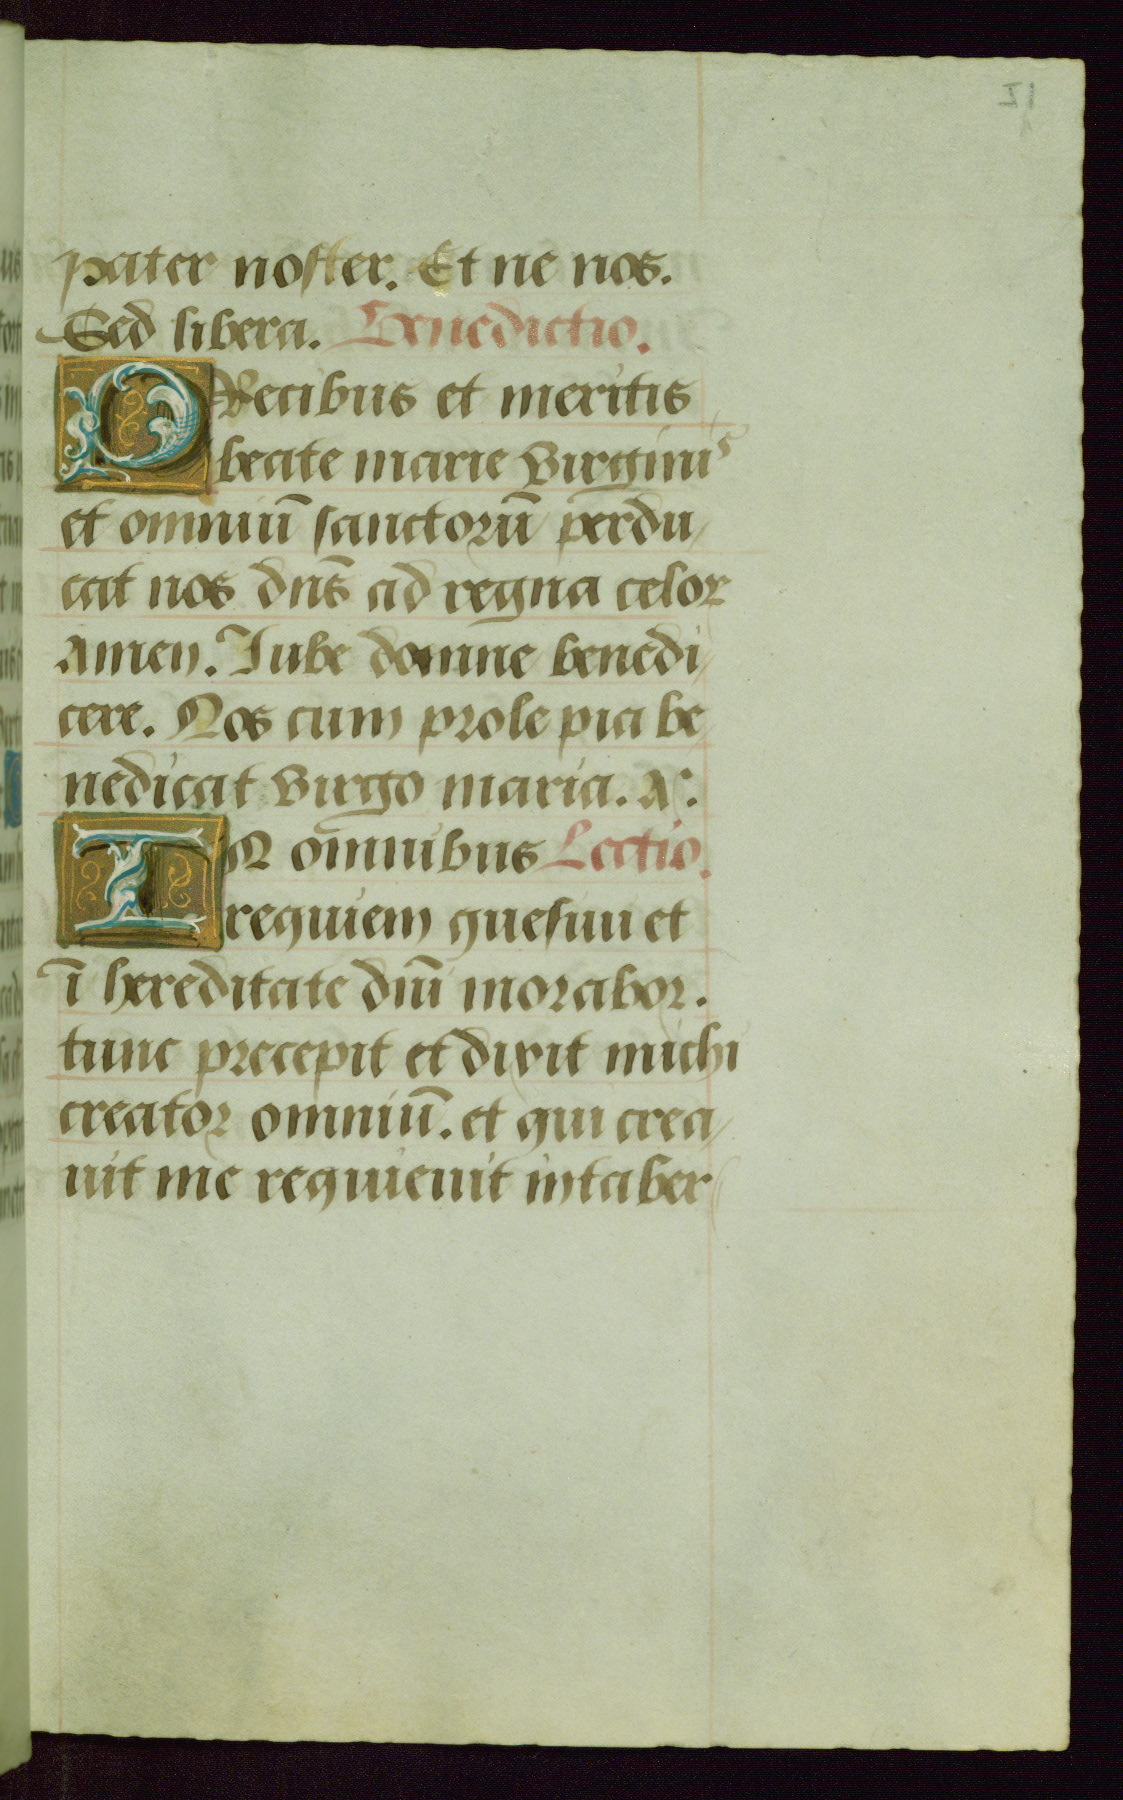 pater noster. Et ne nos.
Sed libera. Benedictio.
PRecibus et meritis
beate marie Virginis
et omniū sanctorū perdu
cat nos dn̄s ad regna celor
Amen. Iube domne benedi
cere. Nos cum prole pia be
nedicat Virgo maria. A:
IN omnibus Lectio.
requiem quesiui et
ī hereditate dn̄i morabor.
tunc precepit et dixit michi
creator omniū. et qui crea
uit me requieuit in taber